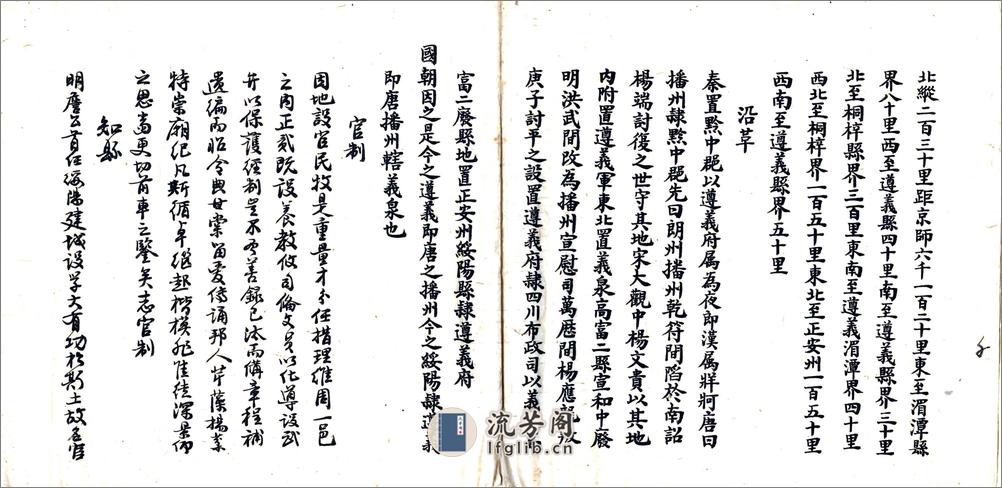 北縱二百三十里距京師六千一百二十里東至湄潭縣
界八十里西至遵義縣四十里南至遵義縣界三十里
北至桐梓縣界三百里東南至遵義湄潭界四十里
西北至桐梓界一百五十里東北至正安州一百五十里
西南至遵義縣界五十里
沿革
秦置黔中郡以遵義府属為夜郎漢属牂牁唐曰
播州隸黔中郡先曰朗州播州乾符間陷於南詔
楊端討復之世守其地宋大觀中楊文貴以其地
内附置遵義軍東北置義泉高富二縣宣和中廢
明洪武間改為播州宣慰司萬曆間楊應龍以
庚子討平之設置遵義府隸四川布政司以義
富二廢縣地置正安州綏陽縣隸遵義府
國朝因之是今之遵義即唐之播州今之綏陽隸遵義
即唐播州轄義泉也
官制
因地設官民牧是重量才分任措理維周一邑
之内正貳既設養教攸司倫文員以化導設武
弁以保護經制豈不善錄已汰而購章程補
遺編而昭令典甘棠留愛傳誦邦人芹藻揚
特崇廟祀凡斯循卓繼起楷模佳徒深景仰
之思尚更切前車之鑒矣志官制
知縣
明詹公首任綏陽建城設学大有功於斯土故名官
流芳阁
lfglib.cn